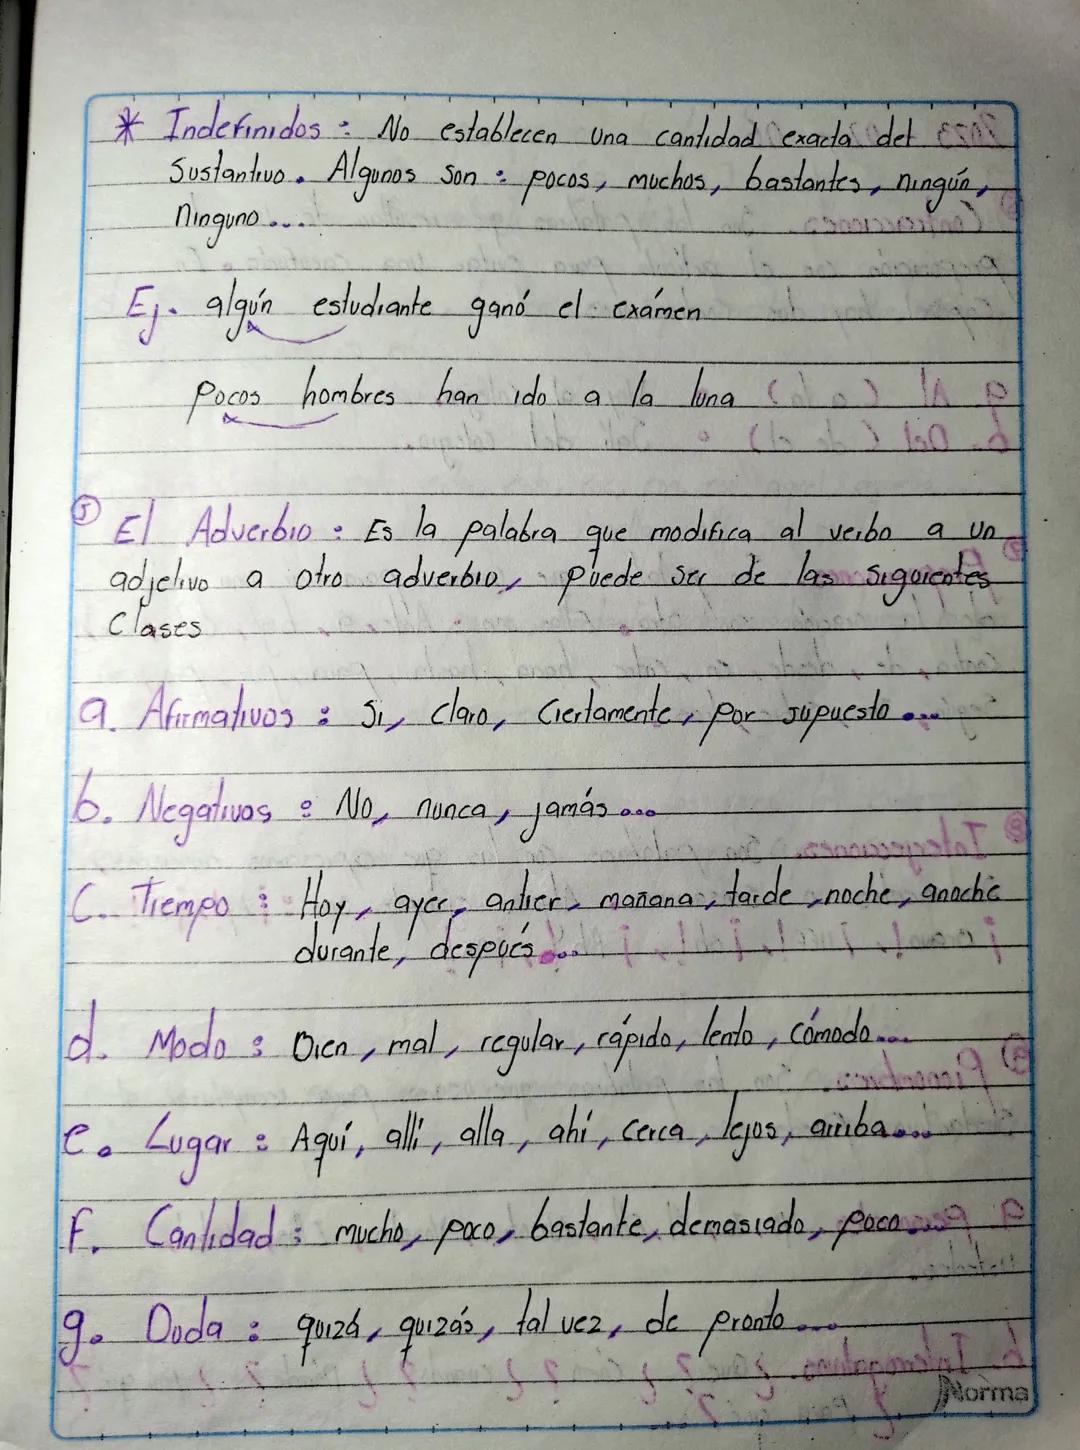 * Indefinidos : No establecen una cantidad exacta del
Sustantivo. Algunos son : pocos, muchos, bastantes, ningún,
Ninguno ....
Ej. algún estudiante ganó el exámen
Pocos hombres han ido a la luna
⑤ El Adverbio : Es la palabra que modifica al verbo a un
adjetivo a otro adverbio, puede ser de las siguientes
Clases
a. Afirmativos : Si, claro, Ciertamente, por supuesto ...
b. Negativos : No, nunca, jamás ...
C. Tiempo : Hoy, ayer, antier, mañana, tarde, noche, anoche
durante, después ...
d. Modo : Bien, mal, regular, rápido, lento, cómodo ...
e. Lugar : Aquí, allí, alla, ahí, cerca, lejos, arriba ...
F. Cantidad : mucho, poco, bastante, demasiado, poco ...
g. Duda : quizá, quizás, tal vez, de pronto ...
Norma